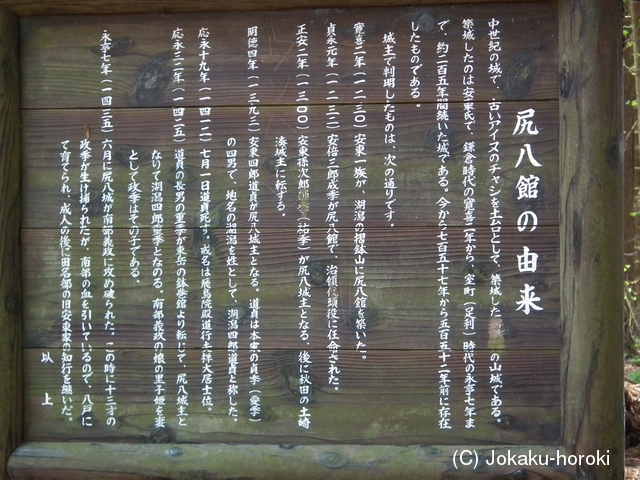 尻八館の由来
中世紀の城で、古いアイヌのチャシを土台として、築城した の山城である。
築城したのは安東氏で、鎌倉時代の寛喜二年から、室町(足利)時代の永享七年ま
で、約二百五年間続いた城である。今から七百五十七年から五百五十二年前に存在
したものである。
城主で判明したものは、次の通りです。
寛喜二年(一二三〇)安東一族が、湖潟の摺鉢山に尻八館を築いた。
貞永元年(一二三二)安倍二郎成季が尻八館で、治領代頭役に任命された。
正安二年(一三〇〇)安東孫次郎 (祐季)が尻八城主となる、後に秋田の土崎
湊城主に転する。
明徳四年(一三九三)安東四郎道貞が尻八城主となる。道貞は本家の貞季(愛季)
の四男で、地名の湖潟を姓として、湖潟四郎道貞と称した。
応永十九年(一四一二)七月一日道貞死す。戒名は飛鳥院殿道行 大居士位。
応永三二年(一四二五)道貞の長男の重季が 岳の鉢巻館より転じて、尻八城主と
なりて湖潟四郎重季となのる。南部義政の娘の里子姫を妻
として政季はその子である。
永享七年(一四三五)六月に尻八城が南部義政に攻め破られた。この時に十三才の
政季が生け捕られたが、南部の血を引いているので、八戸に
て育てられ、成人の後に田名部の旧安東家の知行を継いだ。
以上
(C) Jokaku-horoki